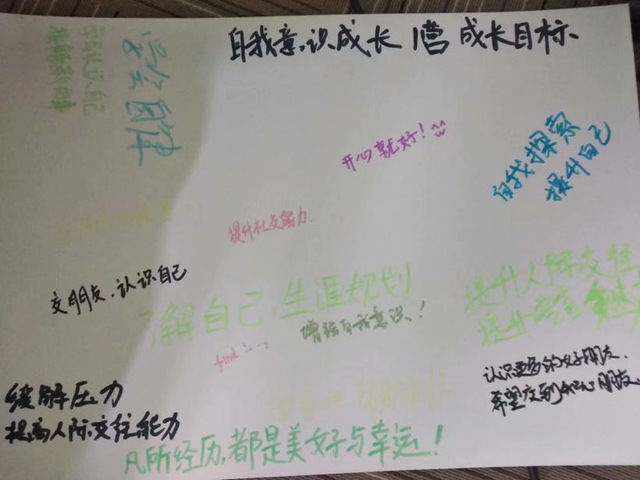 自我意识成长营 成长目标
学会自律
开心就好!
自我探索
提升自己
提升社交能力
交朋友,认识自己
了解自己,生涯规划
提升人际交往
增强自我意识!
find
认识更多的好朋友
希望交到知心朋友
缓解压力
提高人际交往能力
凡所经历,都是美好与幸运!